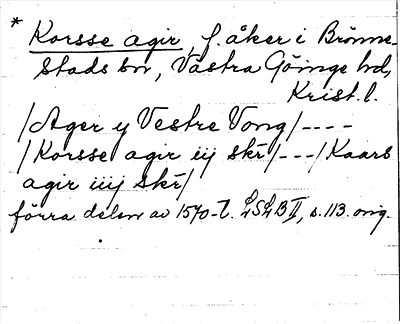 * Korsse agir, f. åker i Brönne-
stads sn, Västra Göinge hd,
Krist. l.
/Ager y Vestre Vong/ ----
/Korsse agir iij skr/ --- /Kaars
agir iiij skr/
förra delen av 1570-t. LSLB II, s. 113. orig.